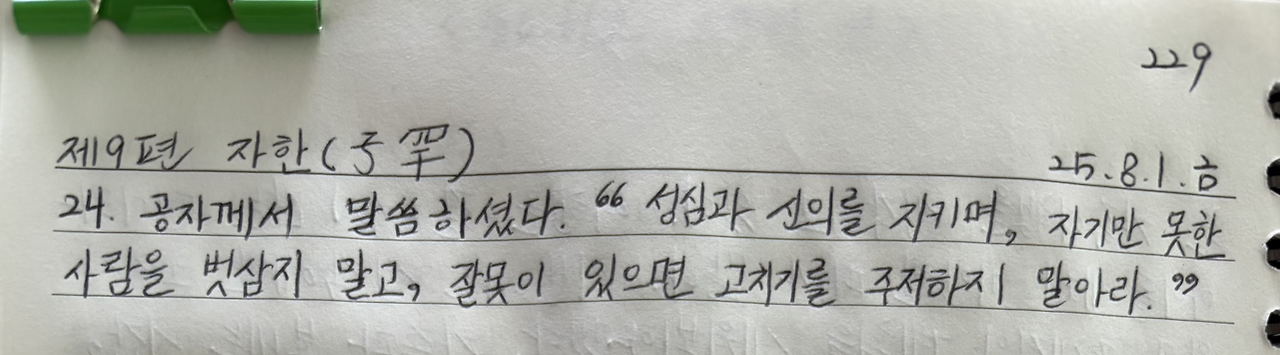 229
제9편 자한(子罕)
25.8.1.금
24. 공자께서 말씀하셨다. “성심과 신의를 지키며, 자기만 못한
사람을 벗삼지 말고, 잘못이 있으면 고치기를 주저하지 말아라.”